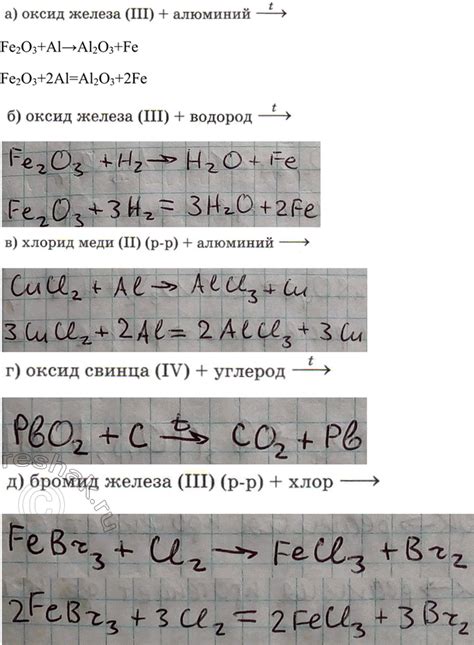 а) оксид железа (III) + алюминий —t→
Fe₂O₃+Al→Al₂O₃+Fe
Fe₂O₃+2Al=Al₂O₃+2Fe
б) оксид железа (III) + водород —t→
Fe₂O₃ + H₂ → H₂O + Fe
Fe₂O₃ + 3H₂ = 3H₂O + 2Fe
в) хлорид меди (II) (р-р) + алюминий ⟶
CuCl₂ + Al → AlCl₃ + Cu
3CuCl₂ + 2Al = 2AlCl₃ + 3Cu
г) оксид свинца (IV) + углерод —t→
PbO₂ + C —t→ CO₂ + Pb
reshak.ru
д) бромид железа (III) (р-р) + хлор ⟶
FeBr₃ + Cl₂ → FeCl₃ + Br₂
2FeBr₃ + 3Cl₂ = 2FeCl₃ + 3Br₂